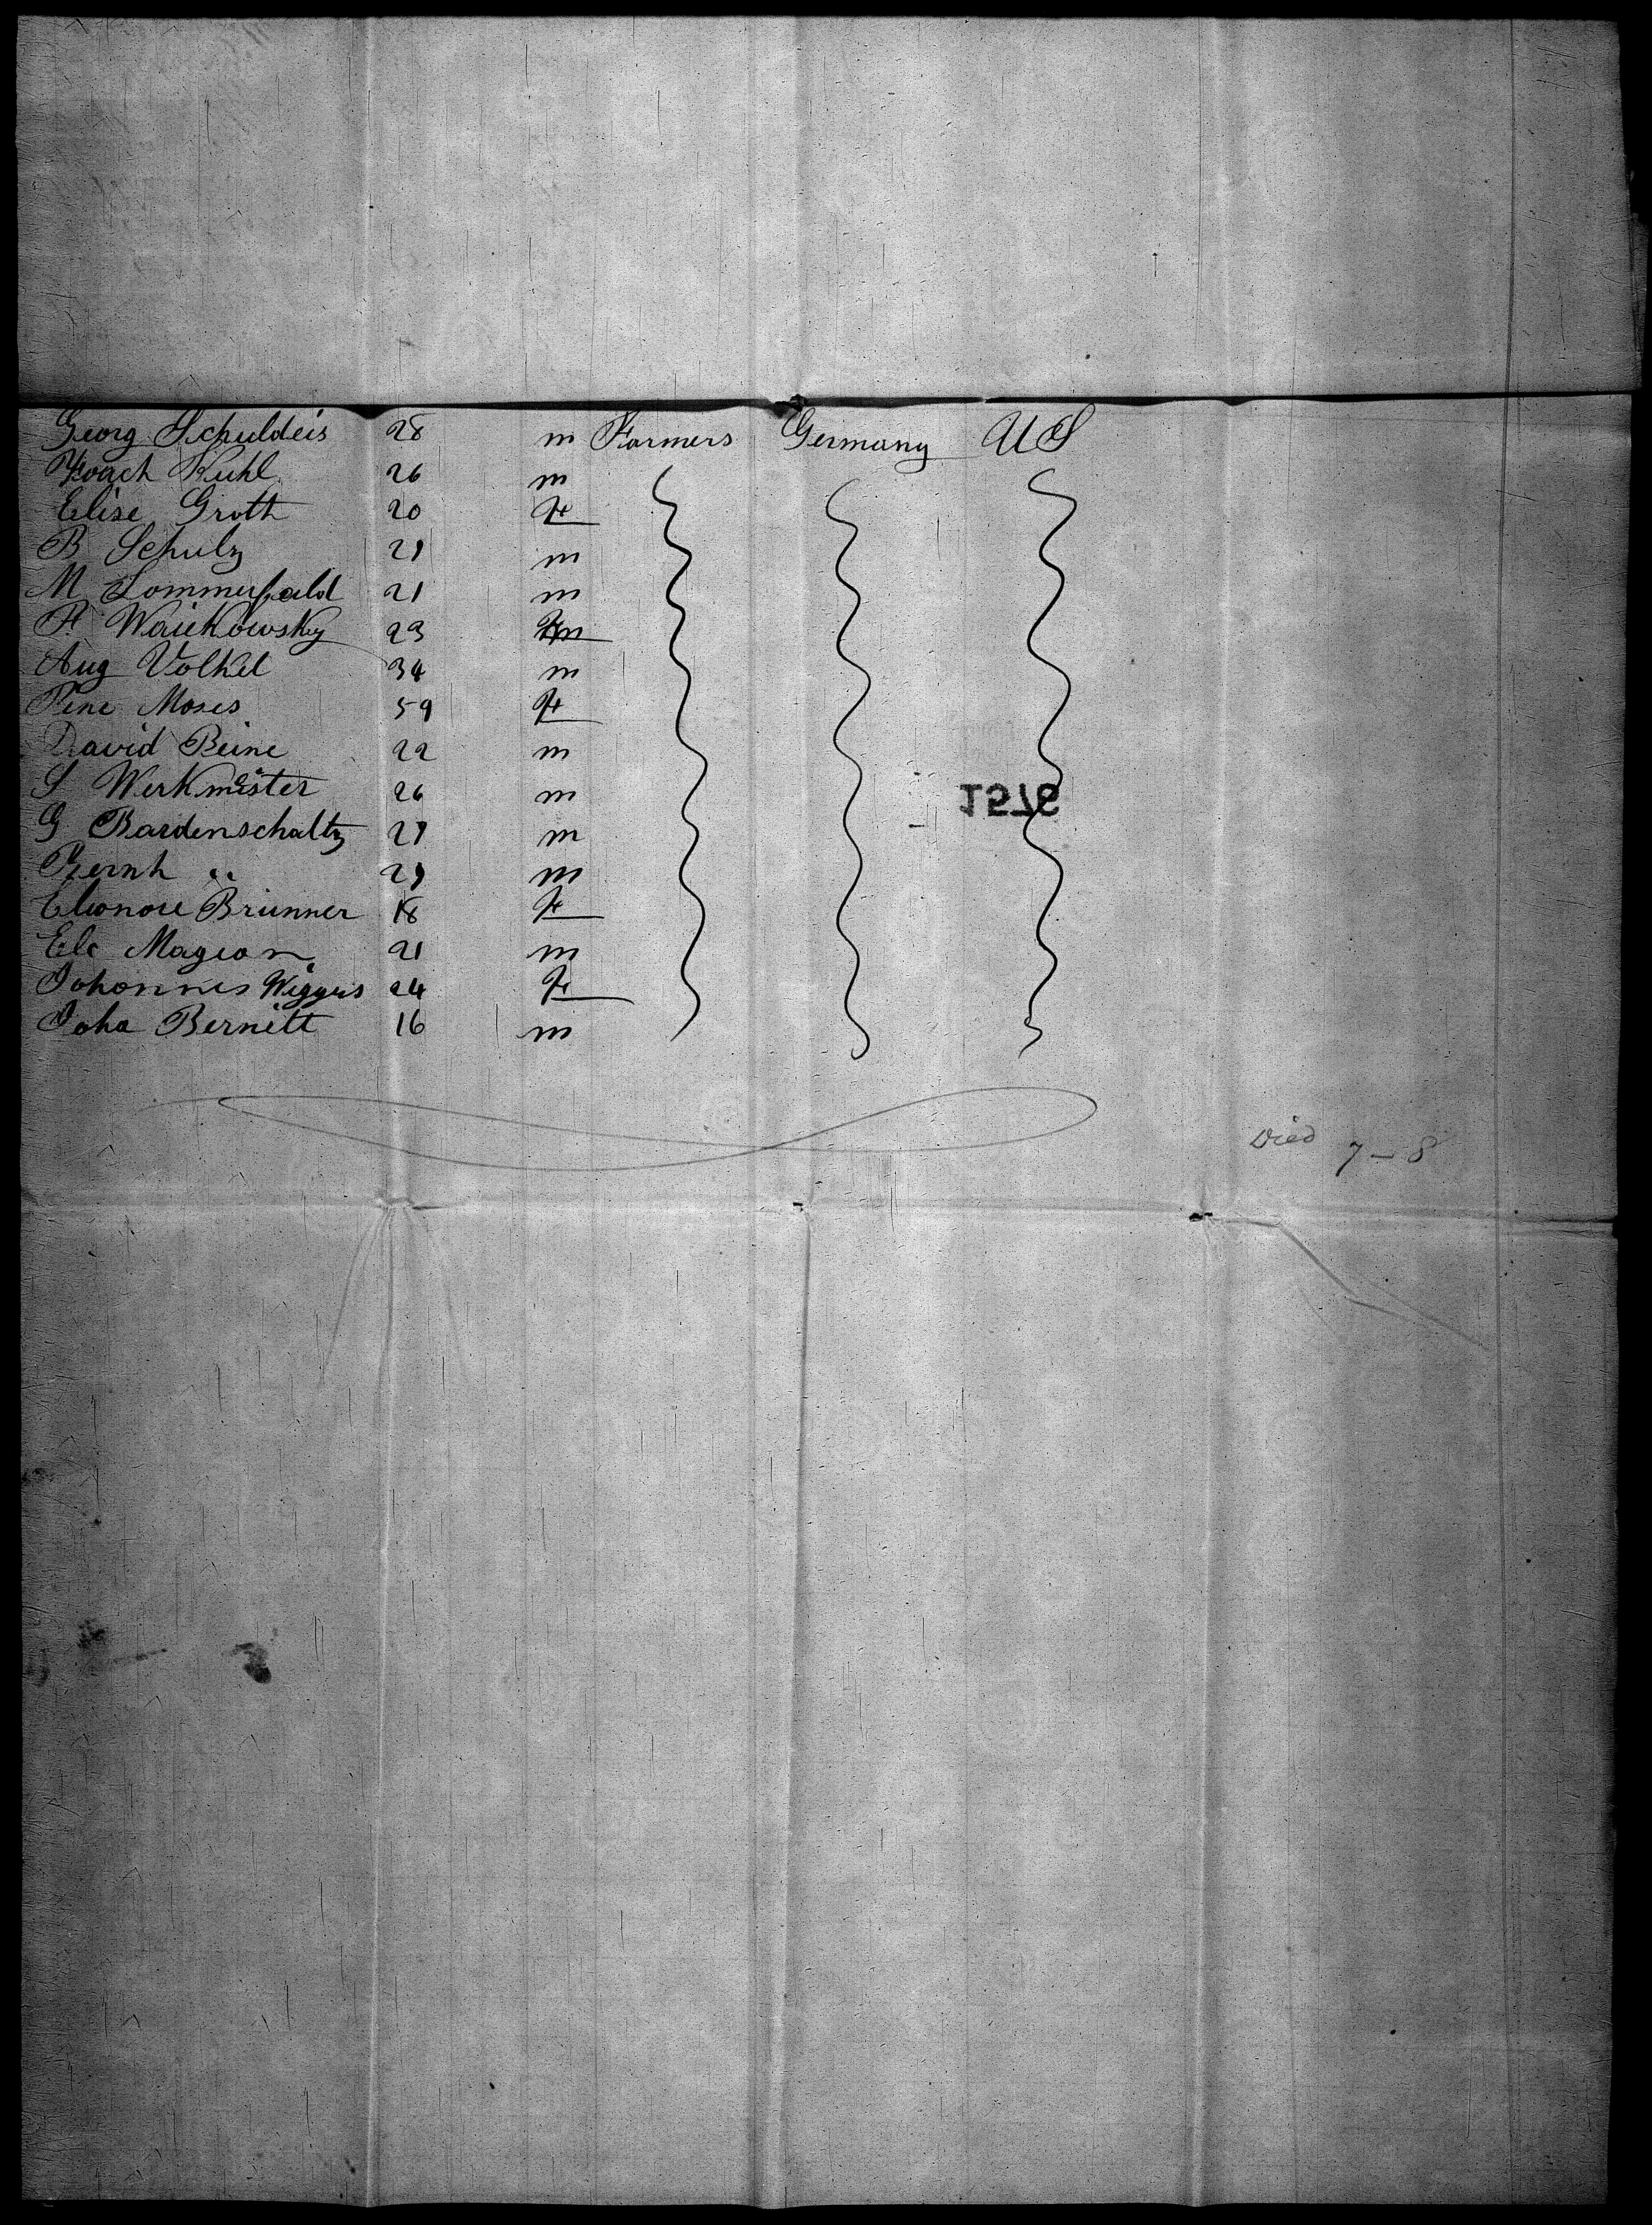 Georg Schuldeis 28 m Farmers Germany US
Kuhl 26 m
Elise Groth 20 Fe
B Schulz 21 m
M Sommerfeld 21 m
F. 23
Aug Volkel 34 m
Moses 59 Fe
David Beine 22 m
S Werkmeister 26 m
G Bardenschaltz 27 m
Bernh " 29 m
Eleonore Brunner 18 Fe
Ele 21 m
Johonnes Wiggers 24 Fe
Joha Bernitt 16 m
Died 7 - 8